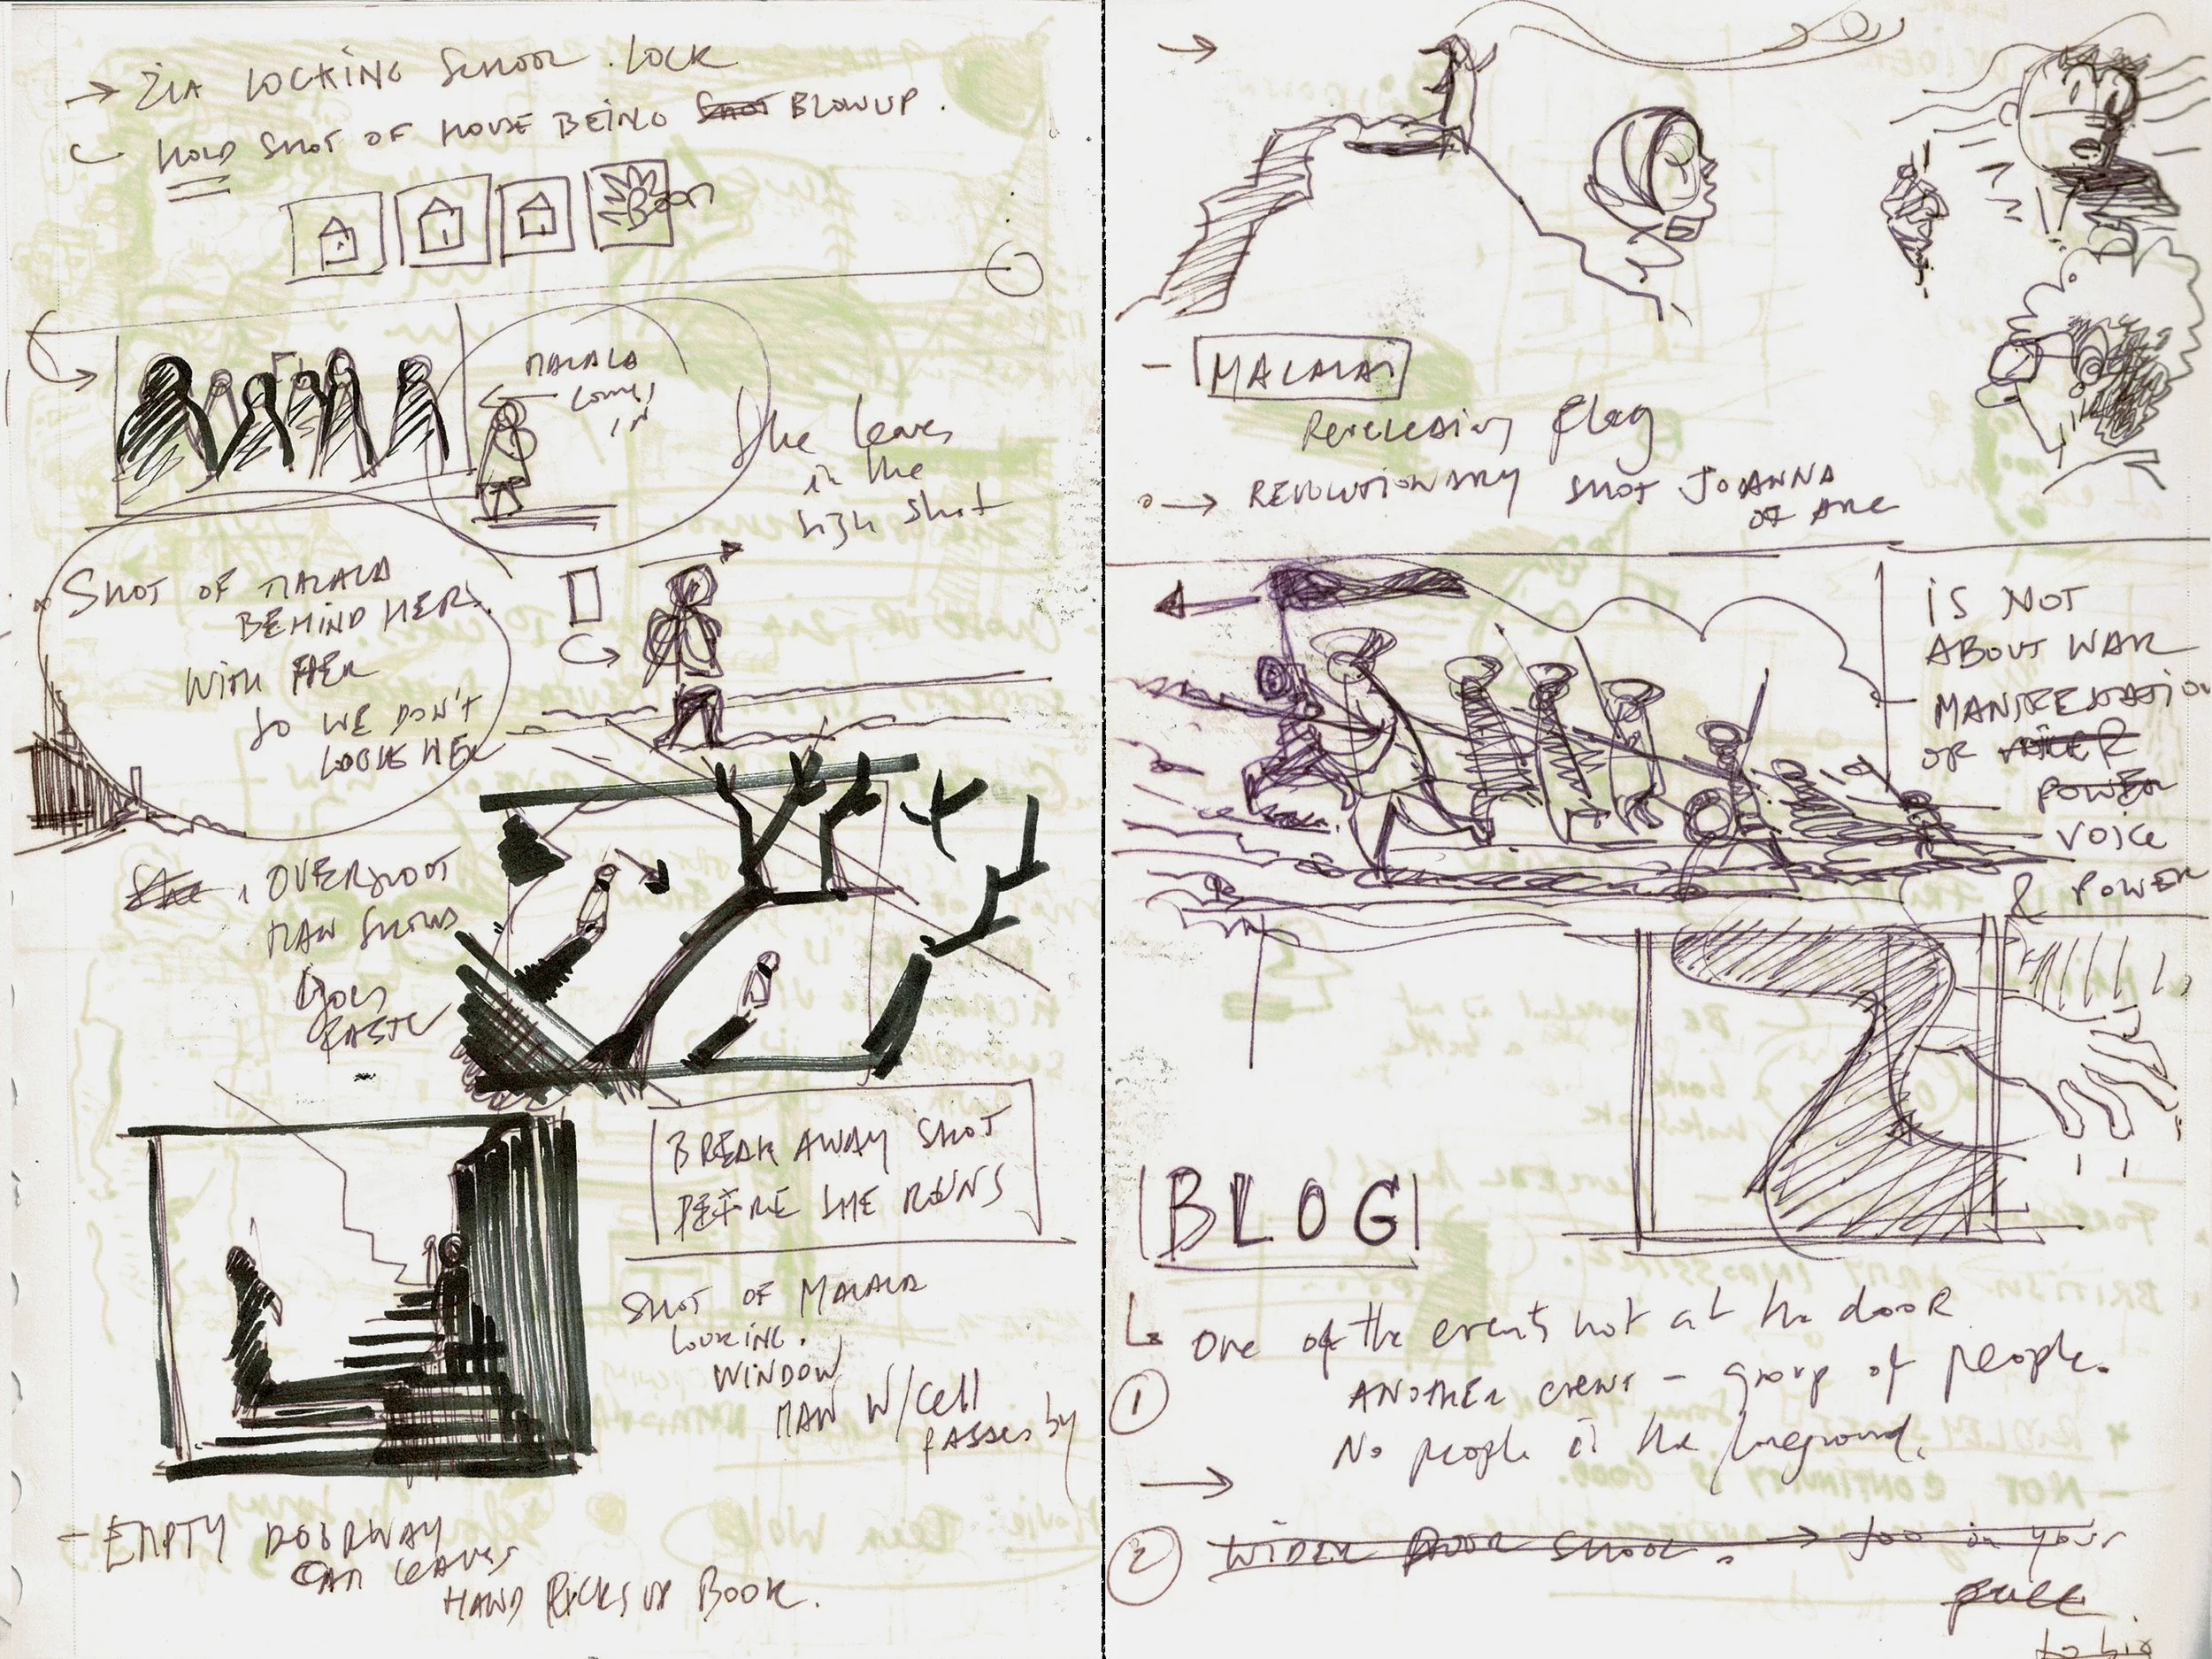 → ZIA LOCKING SCHOOL. LOCK
HOLD SHOT OF HOUSE BEING SHOT BLOWUP.
BOOM
MALALA
COMES
IN
She leaves
in the
high shot
SHOT OF MALALA
BEHIND HER.
WITH HER
SO WE DON'T
LOOSE HER
OVERSHOOT
MAN SHOWS
Goes
FASTER
BREAK AWAY SHOT
BEFORE SHE RUNS
SHOT OF MALALA
LOOKING.
WINDOW
MAN W/Cell
PASSES by
- EMPTY DOORWAY
CAR LEAVES
HAND PICKS UP BOOK.
→
- MALALAI
Flag
→ REVOLUTIONARY SHOT JOANNA
OF ARC
IS NOT
ABOUT WAR
MANIFESTATION
OF
POWER
VOICE
& POWER
BLOG
One of the events not at the door
① ANOTHER event - group of people.
No people in the foreground.
→
② WIDER DOOR SHOOT. → Too in your
face.